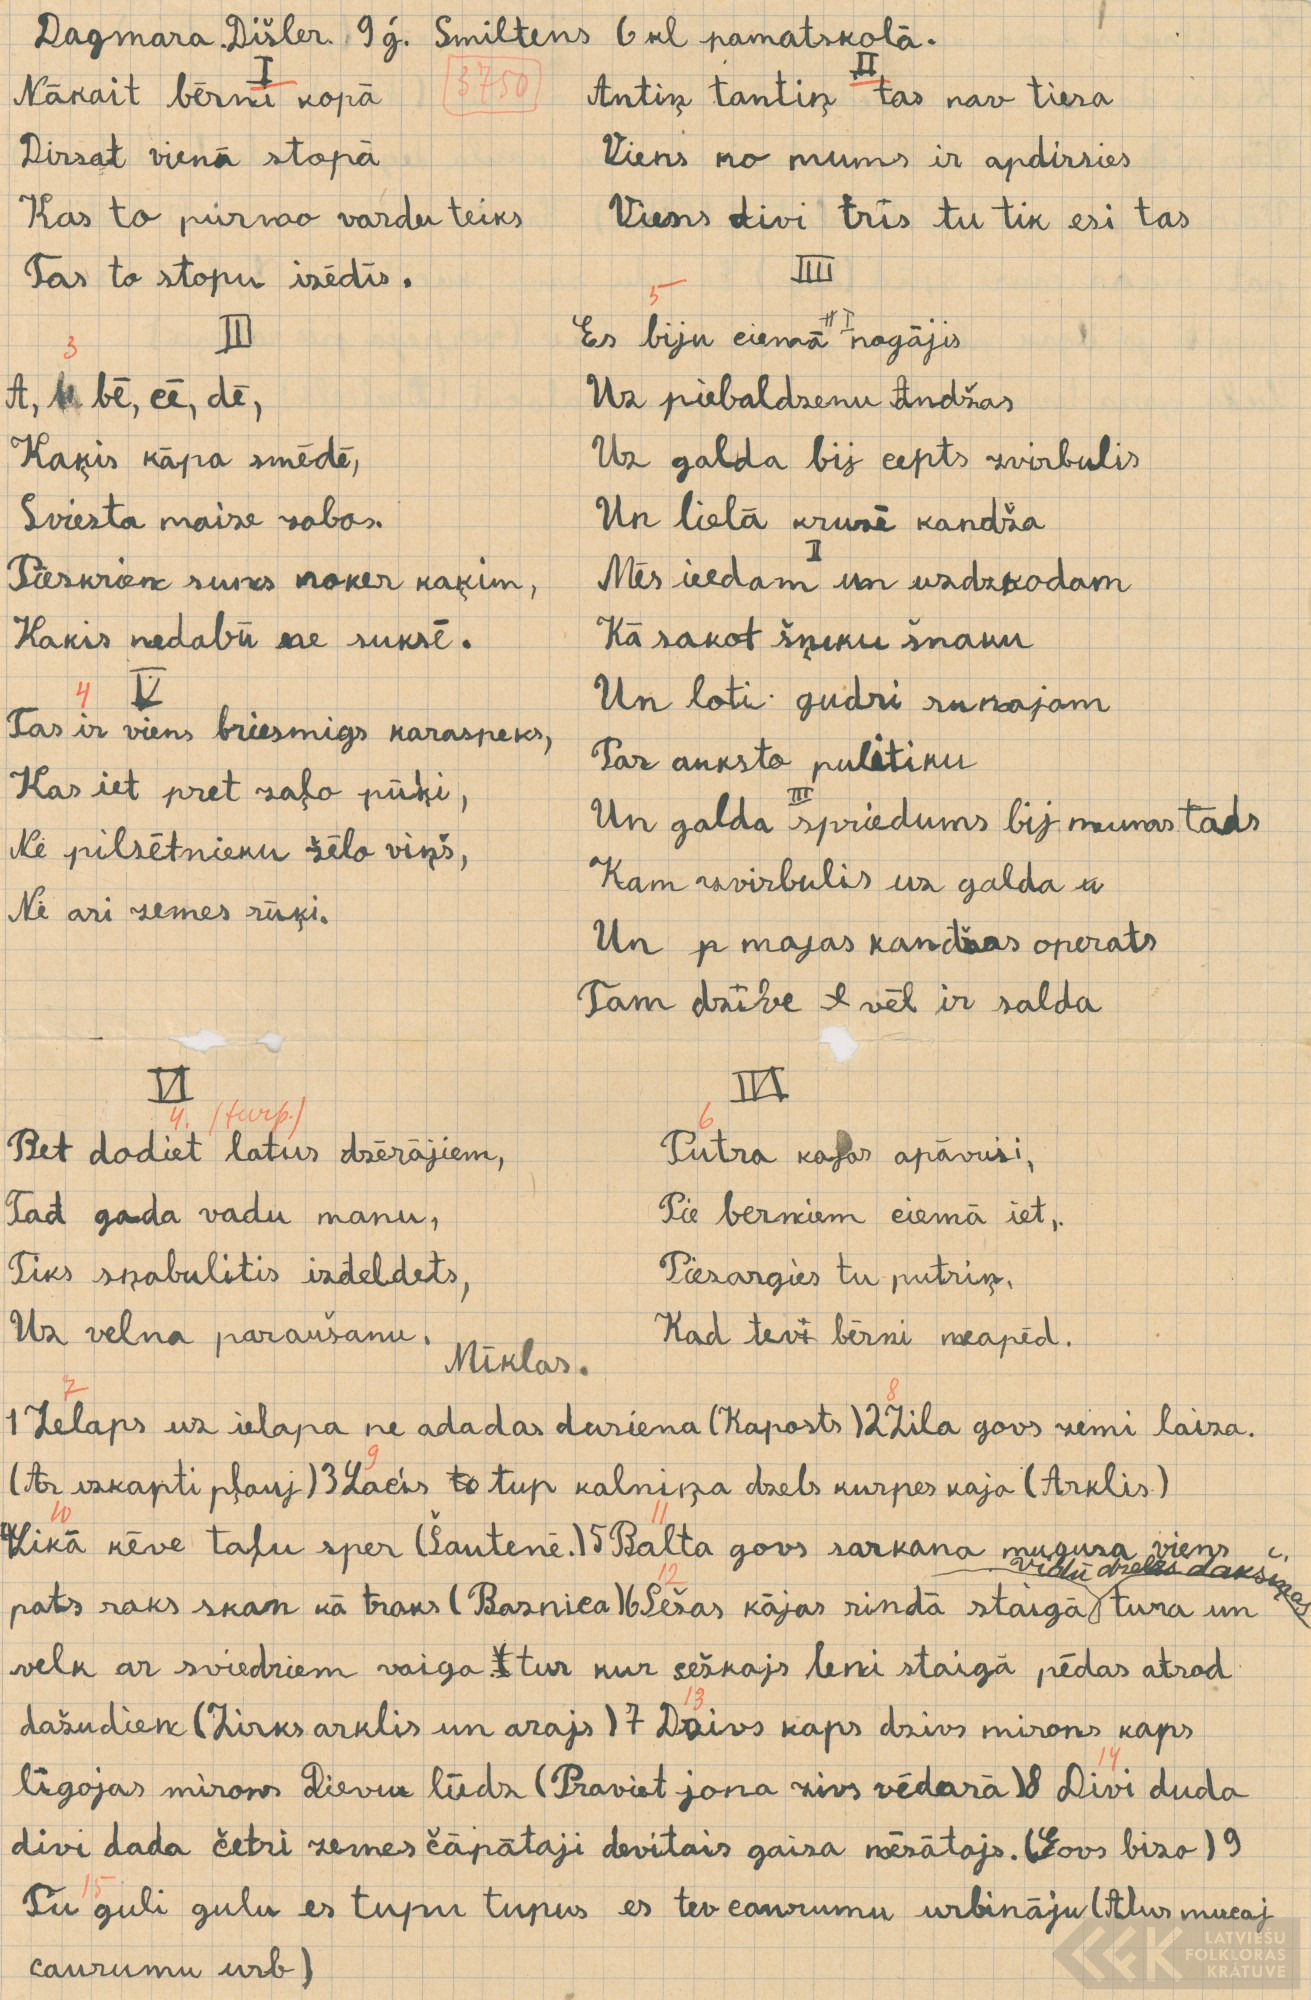 Dagmara Dišler. 9 ģ. Smiltens 6 kl pamatskolā.
3750
I
Nākait bērni kopā
Dirsat vienā stopā
Kas to pirmo vardu teiks
Tas to stopu izēdīs.
II
Antiņ tantiņ tas nav tiesa
Viens no mums ir apdirsies
Viens divi trīs tu tik esi tas
III
3
A, bē, cē, dē,
Kaķis kāpa smēdē,
Sviesta maize zobos.
Pieskrien suns noķer kaķim,
Kakis nedabū ne suksē.
IV
4
Tas ir viens briesmigs karaspeks,
Kas iet pret zaļo pūķi,
Nē pilsētnieku žēlo viņš,
Nē ari zemes rūķi.
IIII
5
I
Es biju ciemā nogājis
Uz piebaldzenu Andžas
Uz galda bij cepts zvirbulis
Un lielā kruzē kandža
II
Mēs ieedam un uzdzeodam
Kā sakot šņiku šnaku
Un loti gudri runajam
Par auksto pulitiku
III
Un galda spriedums bij mumas tads
Kam zvirbulis uz galda
Un p majas kandžas operats
Tam dzīve vēl ir salda
VI
4. (turp.)
Bet dodiet latus dzērājiem,
Tad gada vadu manu,
Tiks sņabulitis izdeldets,
Uz velna paraušanu.
6
Putra kajas apāvusi,
Pie berniem ciemā iet,
Piesargies tu putriņ,
Kad tevi bērni neapēd.
Mīklas.
7 8
1 Lelaps uz ielapa ne adadas duriena (Kaposts) 2 Zila govs zemi laiza.
9
(Ar izkapti pļauj) 3 Lacis tup kalniņa dzels kurpes kaja (Arklis)
10 11
4 Likā kēve taļu sper (Šautenē.) 5 Balta govs sarkana mugusa viens
vidū dzelzs dakšiņas
12
pats raks skan kā traks (Baznica) 6 Sēšas kājas rindā staigā tura un
velk ar sviedriem vaiga tur kur seškajs leni staigā pēdas atrod
13
dažudien (Zirks arklis un arajs) 7 Dzivs kaps dzivs mirons kaps
14
līgojas mirons Dievu lūdz (Praviet jona zivs vēdarā) 8 Divi duda
divi dada četri zemes čāpātaji devitais gaisa mēsātajs. (Govs bizo) 9
15
Tu guli gulu es tupu tupus es tev caurumu urbināju (Alus mucaj
caurumu urb)
LATVIEŠU
FOLKLORAS
KRĀTUVE